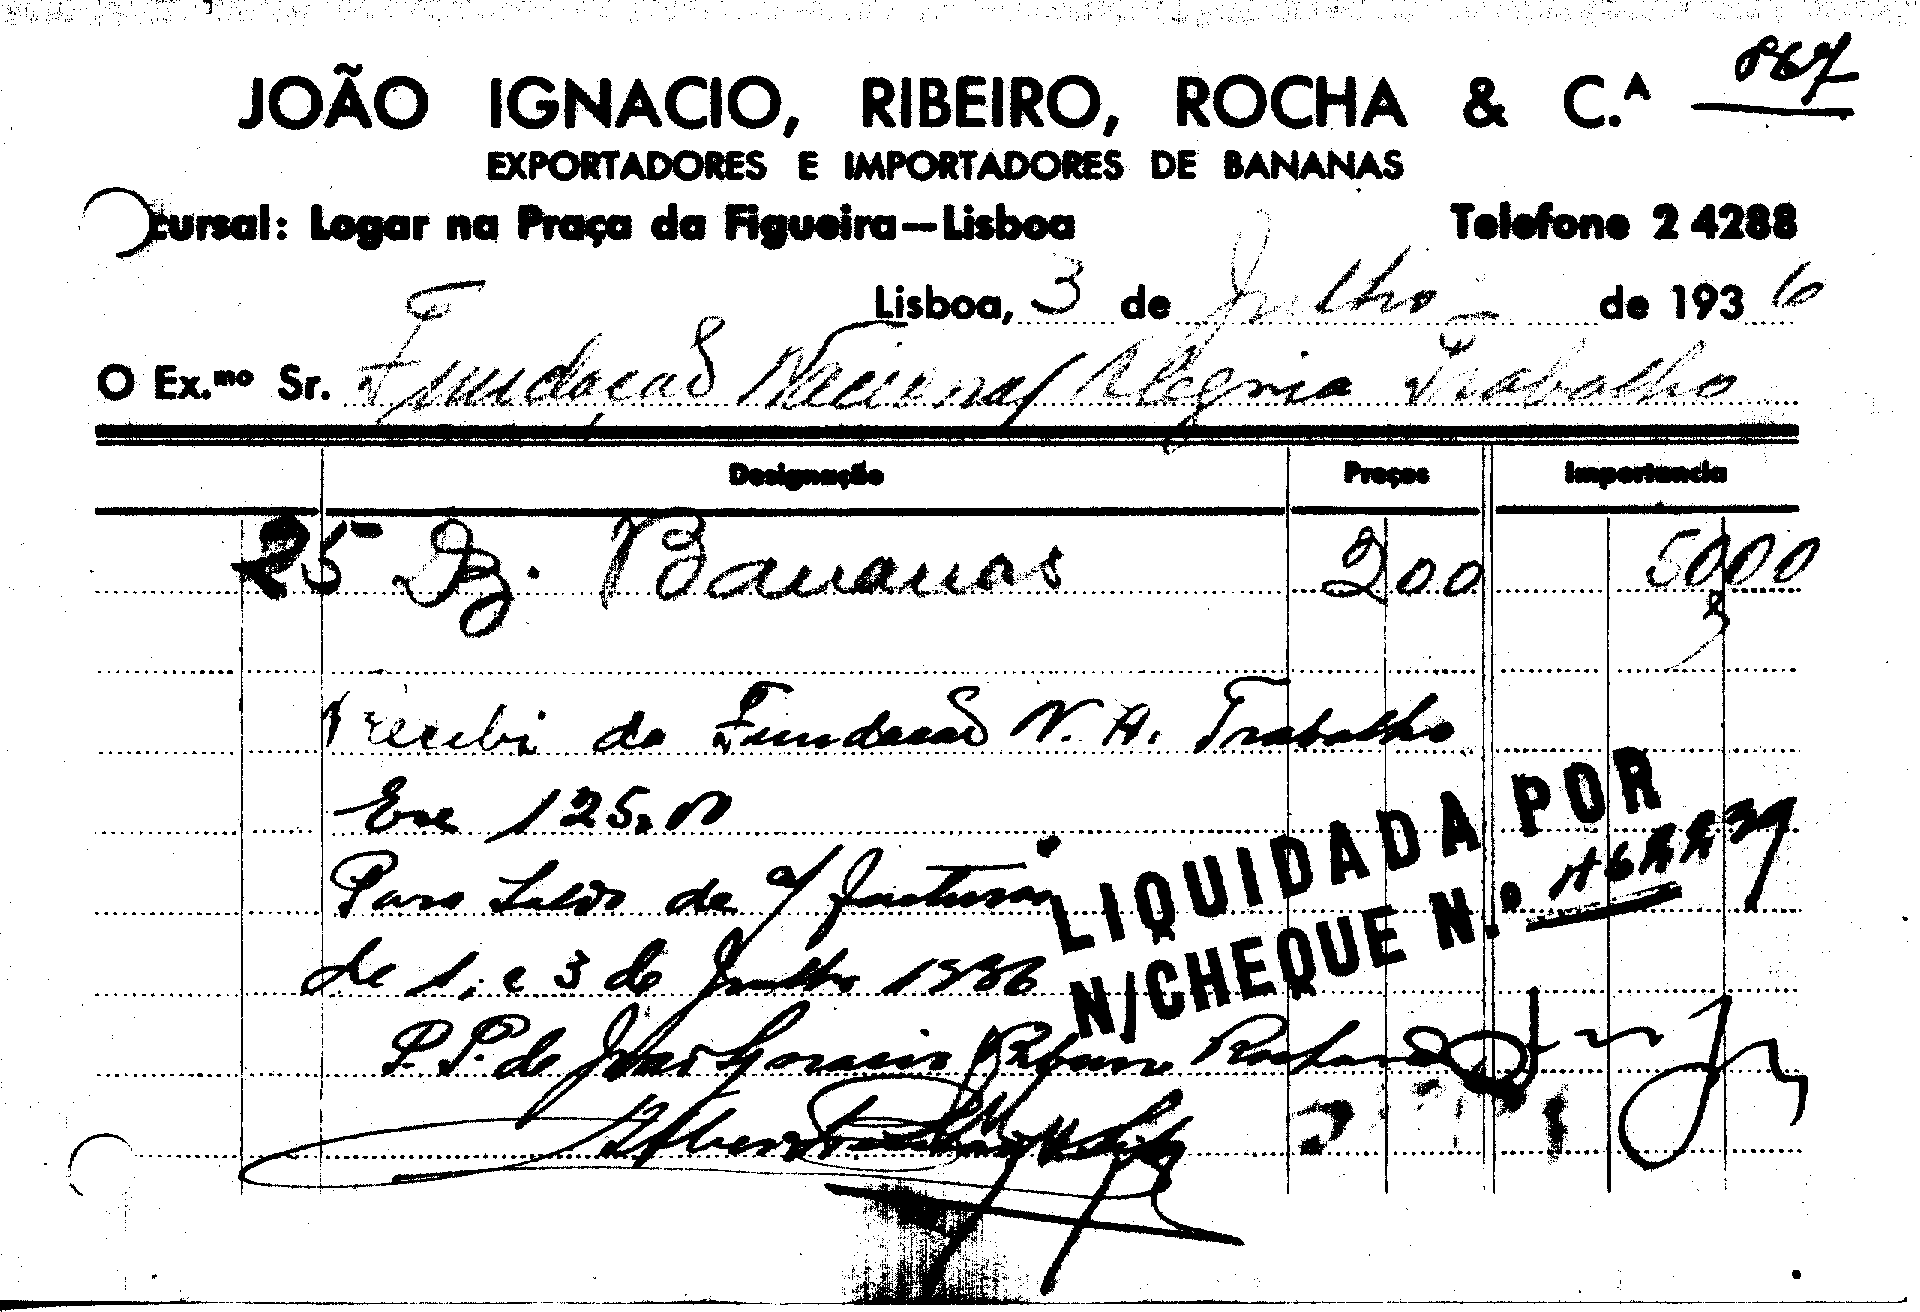 867
JOÃO IGNACIO, RIBEIRO, ROCHA & C.ᴬ
EXPORTADORES E IMPORTADORES DE BANANAS
cursal: Logar na Praça da Figueira—Lisboa Telefone 2 4288
Lisboa, 3 de Julho de 1936
O Ex.ᵐᵒ Sr. Fundação Nacional Alegria Trabalho
Designação Preços Importancia
25 Dz. Bananas 200 5000
Recebi da Fundacão N. A. Trabalho
Esc 125.00
Para Saldo de s/ facturas
de 1, e 3 de Julho 1936
LIQUIDADA POR
N/CHEQUE N.º
P. P. de João Ignacio Ribeiro Rocha